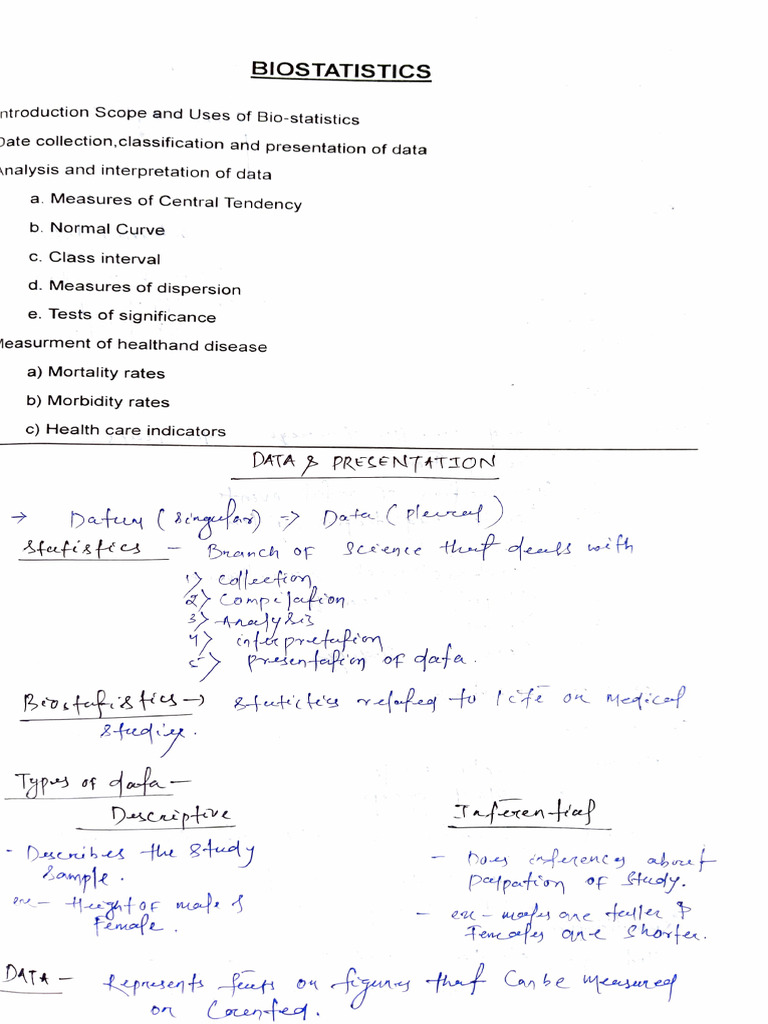 BIOSTATISTICS
ntroduction Scope and Uses of Bio-statistics
Date collection,classification and presentation of data
Analysis and interpretation of data
a. Measures of Central Tendency
b. Normal Curve
c. Class interval
d. Measures of dispersion
e. Tests of significance
Measurment of healthand disease
a) Mortality rates
b) Morbidity rates
c) Health care indicators
DATA & PRESENTATION
→ Datum (singular) => Data (Plural)
Statistics – Branch of science that deals with
1) collection
2) Compilation
3) Analysis
4) interpretation
5) presentation of data.
Biostatistics → Statistics related to life or Medical
studies.
Types of data –
Descriptive Inferential
- Describes the study
sample.
ex – Height of male &
Female.
- Does inferences about
of study.
- ex – males are taller &
Females are shorter.
DATA – Represents facts or figures that Can be measured
or Counted.